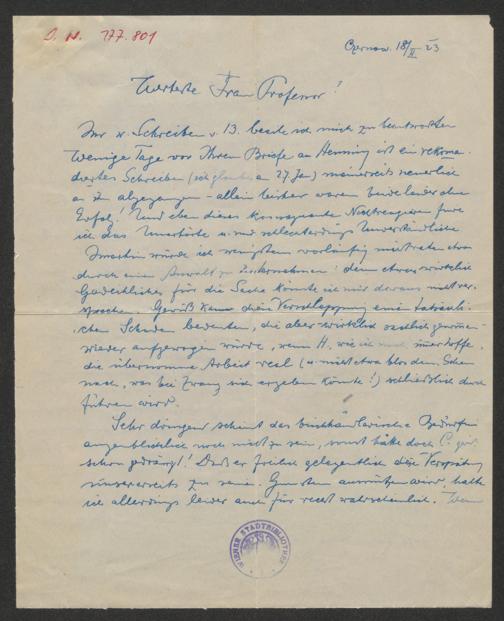 I. N. 177.801
Czernow. 18/II 23
Verehrte Frau Professor!
Ihr w. Schreiben v. 13. beehre ich mich zu beantworten
Wenige Tage vor Ihrem Briefe an Henning ist ein rekom
diertes Schreiben (ich glaube 27 Jan) meinerseits neuerlich
an ihn abgegangen - allein bisher waren beide leider ohne
Erfolg! Und eben dieses Nichtreagieren
ich das Unerhörte u. mir schlechterdings Unverständliche
Immerhin würde ich wenigstens vorläufig etwa
durch einen Anwalt zu unternehmen: denn etwas wirklich
Gedeihliches für die Sache könnte ich mir daraus nicht ver-
sprechen. Gewiß kann diese Verschleppung einen tatsäch-
lichen Schaden bedeuten, die aber wirklich
wieder aufgewogen würde, wenn H. wie ich noch immer hoffe,
die übernommene Arbeit real (u. nicht etwa blos dem Schein
nach, was bei Zwang sich ergeben könnte!) schließlich durch
führen wird.
Sehr dringend scheint das buchhändlerische Bedürfnis
augenblicklich noch nicht zu sein, sonst hätte doch C.
schon gedrängt! Daß er freilich gelegentlich diese Verspätung
unsrerseits zu seinen Gunsten ausnützen wird, halte
ich allerdings leider auch für recht wahrscheinlich.
WIENER STADTBIBLIOTHEK